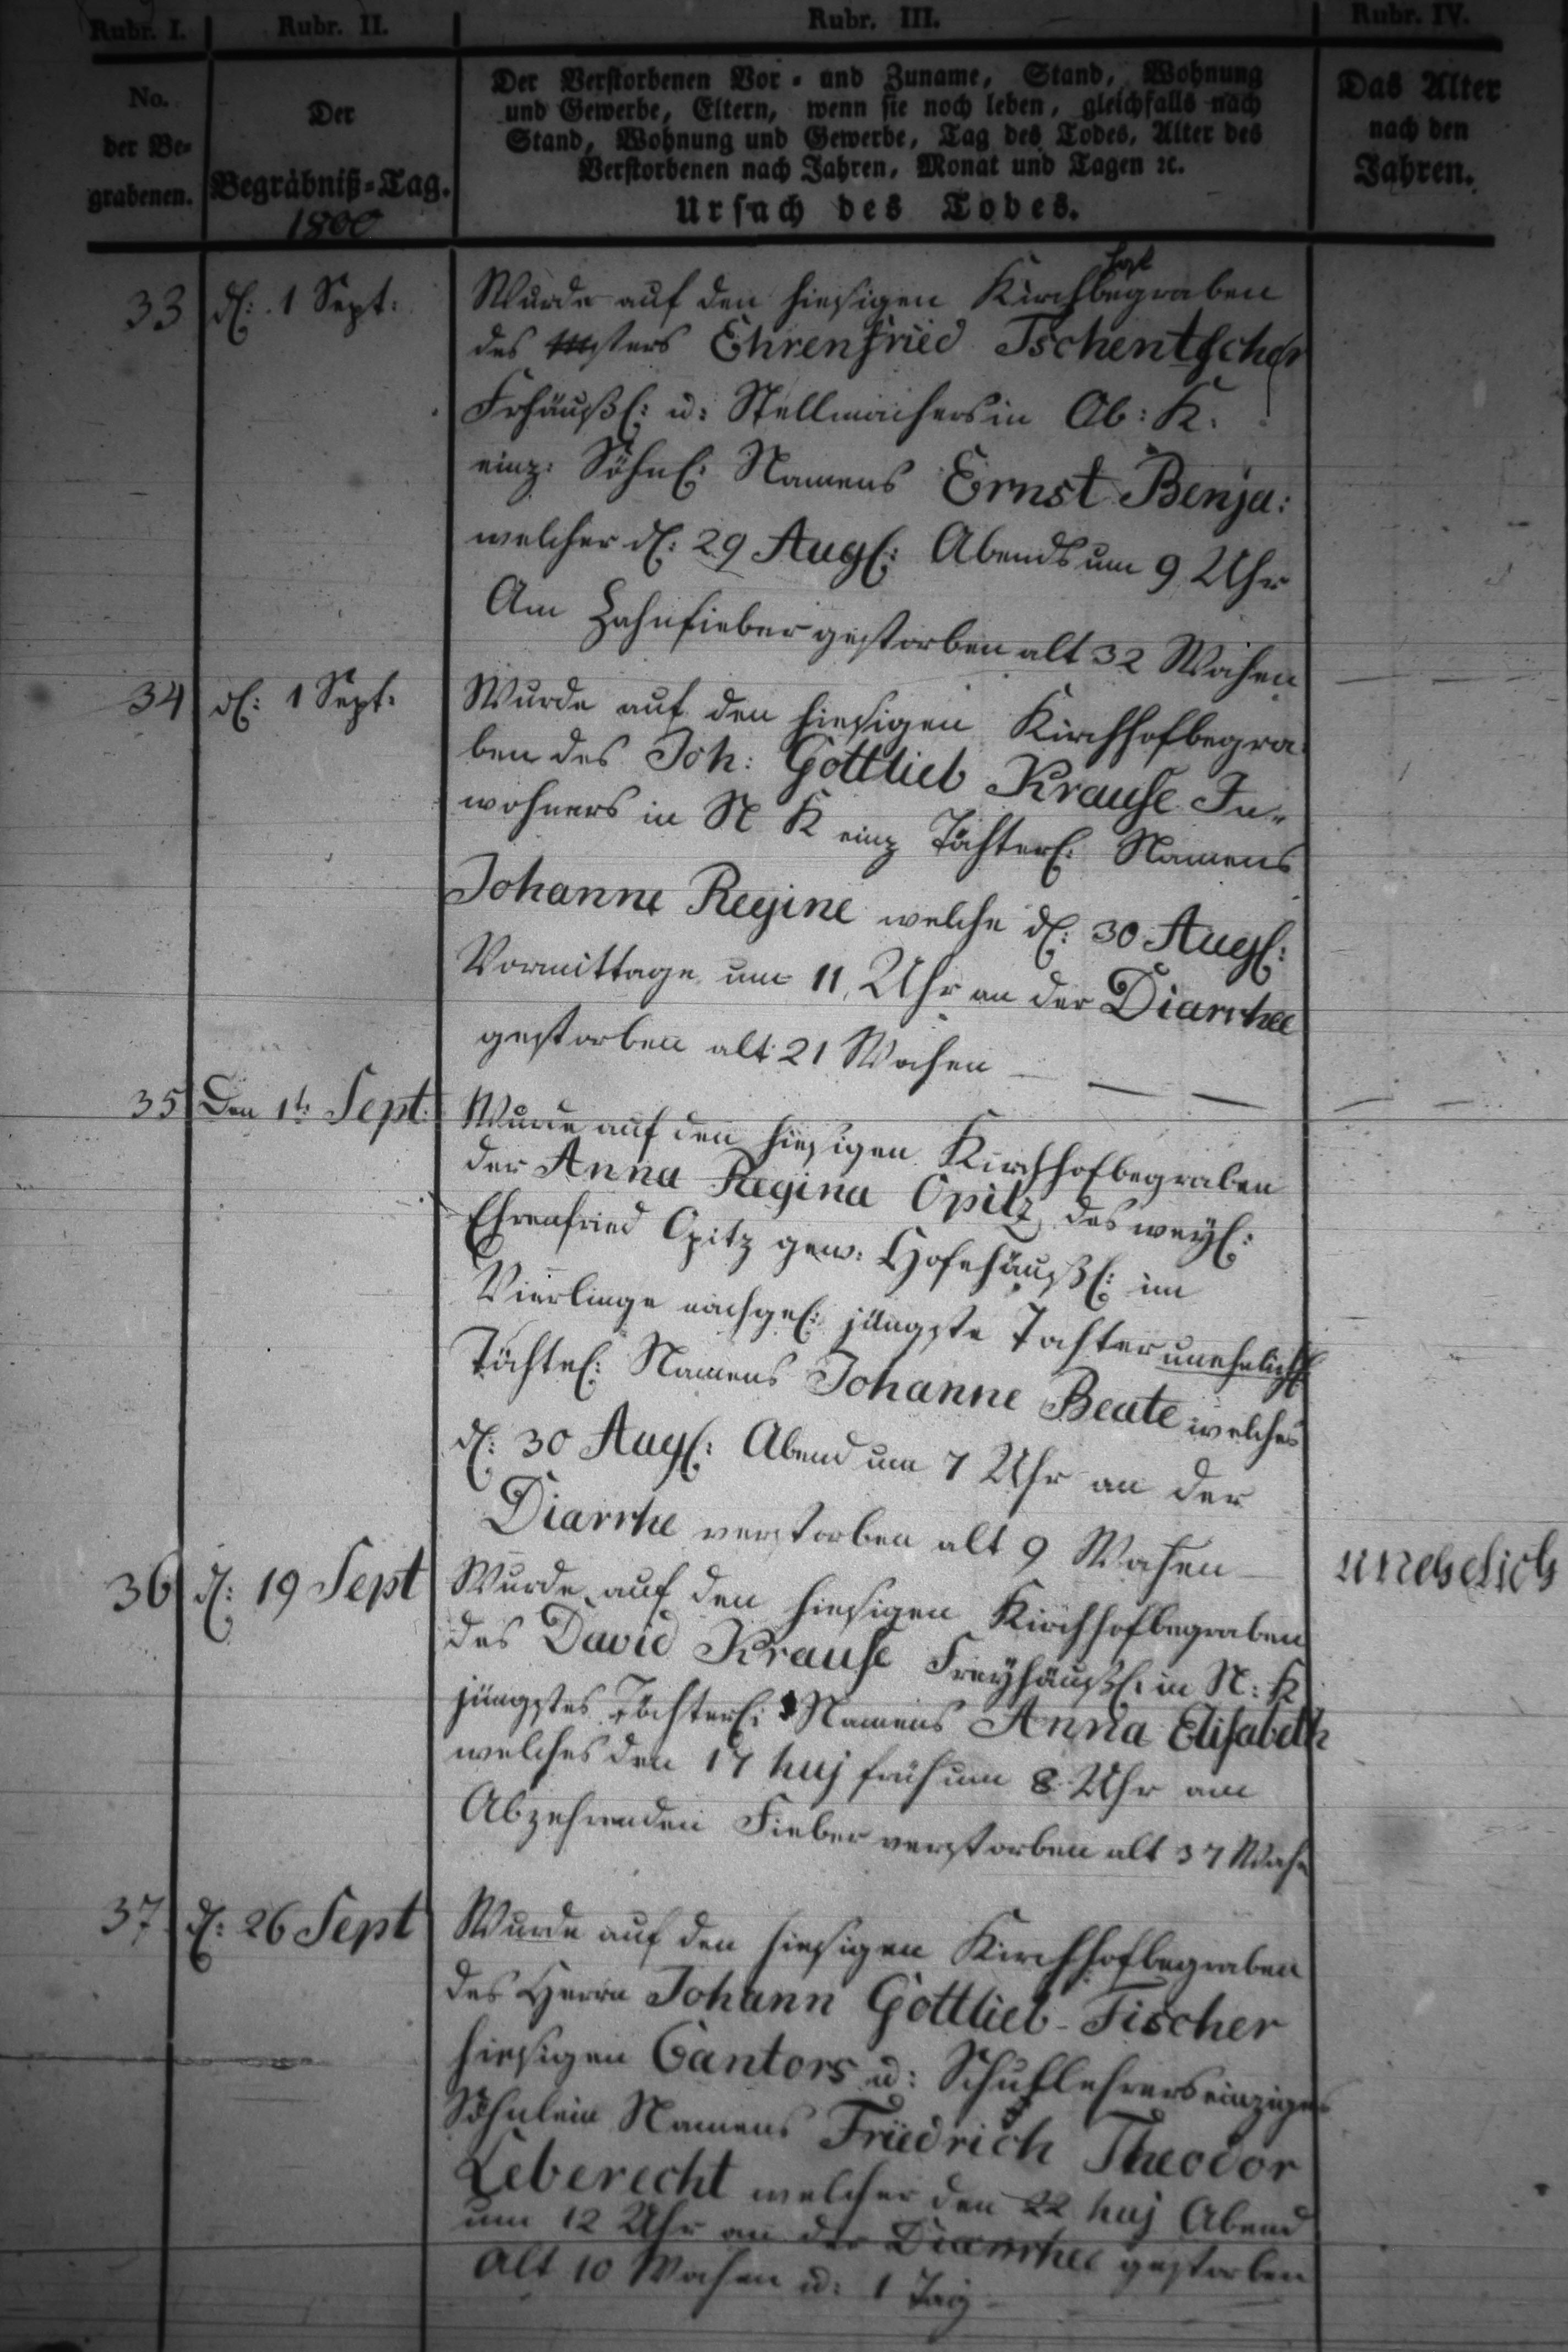 Rubr. I.
Rubr. II.
Rubr. III.
Rubr. IV.
No.
der Be-
grabenen.
Der
Begräbniß-Tag.
1800
Der Verstorbenen Vor- und Zuname, Stand, Wohnung
und Gewerbe, Eltern, wenn sie noch leben, gleichfalls nach
Stand, Wohnung und Gewerbe, Tag des Todes, Alter des
Verstorbenen nach Jahren, Monat und Tagen ꝛc.
Ursach des Todes.
Das Alter
nach den
Jahren.
33
d: 1 Sept:
Wurde auf den hiesigen Kirchhof begraben
des Ehrenfried Tschentscher
Frhäußl: u: Stellmachers in Ob: K.
einz: Söhnl: Namens Ernst Benja:
welcher d: 29 Augl: Abends um 9 Uhr
Am Zahnfieber gestorben alt 32 Wochen
34
d: 1 Sept:
Wurde auf den hiesigen Kirchhof begra
ben des Joh: Gottlieb Krause In-
wohners in N K einz Töchterl: Namens
Johanne Regine welche d: 30 Augl:
Vormittage um 11 Uhr an der Diarrhee
gestorben alt 21 Wochen
35
Den 1t: Sept:
Wurde auf den hiesigen Kirchhof begraben
der Anna Regina Opitz des weyl:
Ehrenfried Opitz gew: Hofehäußl: im
Vierlinge nachgel: jüngste Tochter unehelichl
Töchtel: Namens Johanne Beate welches
d: 30 Augl: Abend um 7 Uhr an der
Diarrhe verstorben alt 9 Wochen
unehelich
36
d: 19 Sept
Wurde auf den hiesigen Kirchhof begraben
des David Krause Freyhäußl: in N: K
jüngstes Töchterl: Namens Anna Elisabeth
welches den 17 huj früh um 8 Uhr am
Abzehrenden Fieber verstorben alt 37 Woch
37
d: 26 Sept
Wurde auf den hiesigen Kirchhof begraben
des Herrn Johann Gottlieb Fischer
hiesigen Cantors u: Schullehrers einziges
Söhnlein Namens Friedrich Theodor
Leberecht welcher den 22 huj Abend
um 12 Uhr an der Diarrhee gestorben
alt 10 Wochen u: 1 Tag